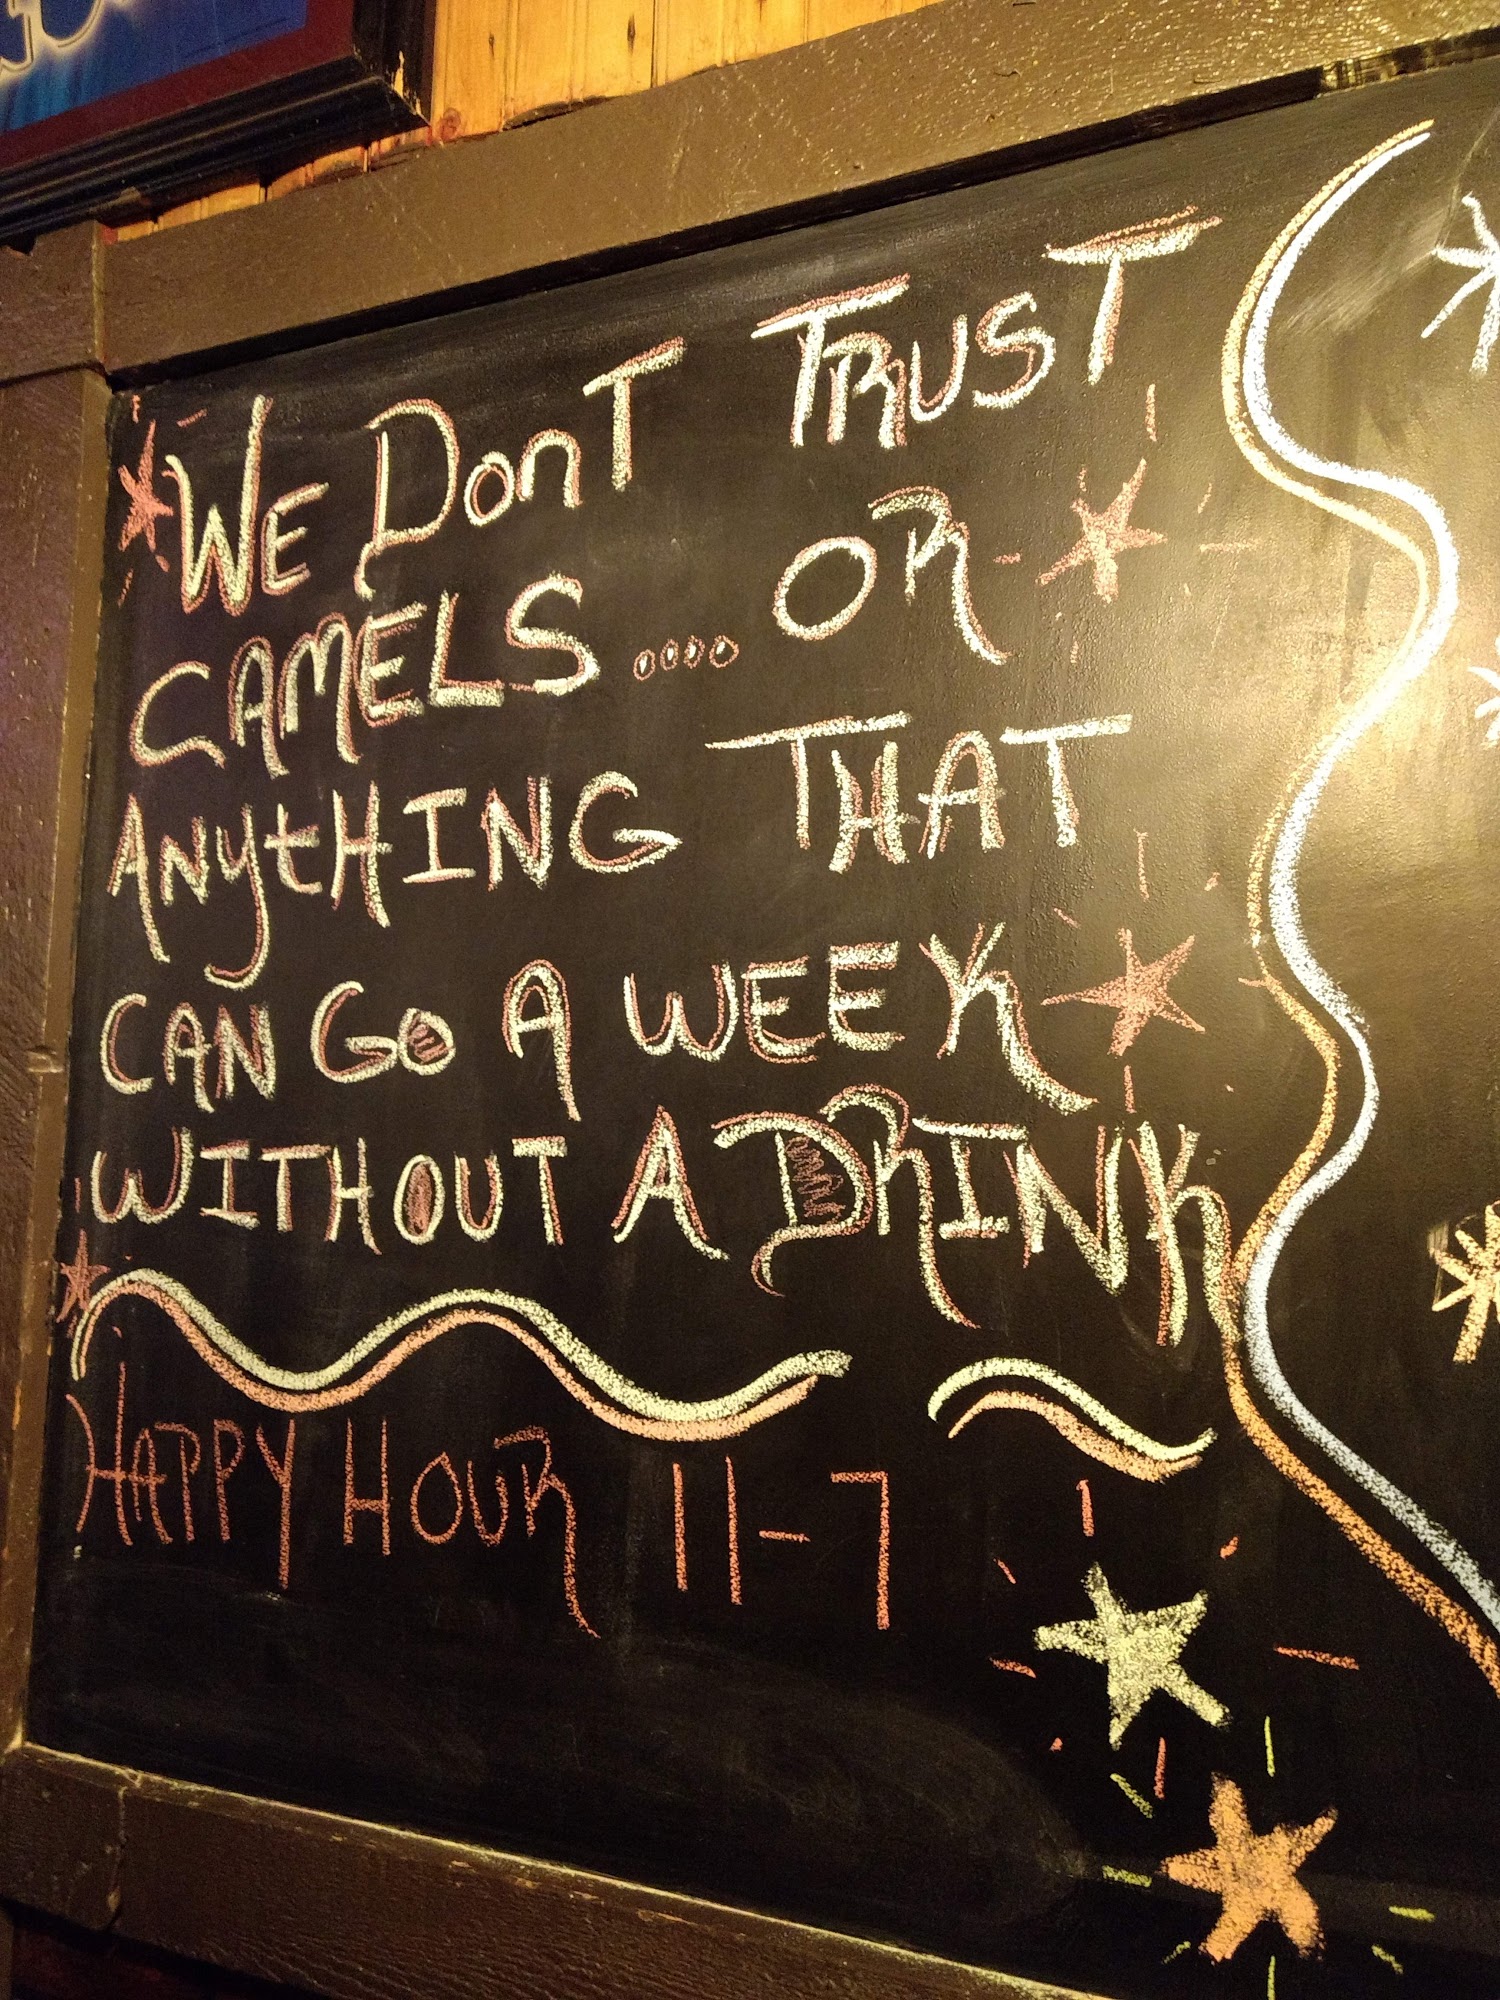 WE DonT TRUST
CAMELS.... OR
ANYtHING THAT
CAN GO A WEEK
WITHOUT A DRINK
HAPPY HOUR 11-7